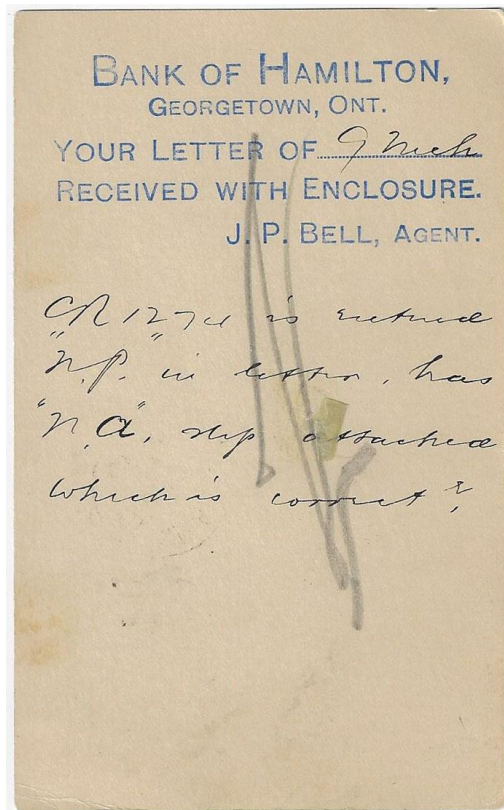 BANK OF HAMILTON,
GEORGETOWN, ONT.
YOUR LETTER OF 9 Mch
RECEIVED WITH ENCLOSURE.
J. P. BELL, AGENT.
CR 1274 is entered
"N.P." in letter, has
"N.A". slip attached
which is correct?